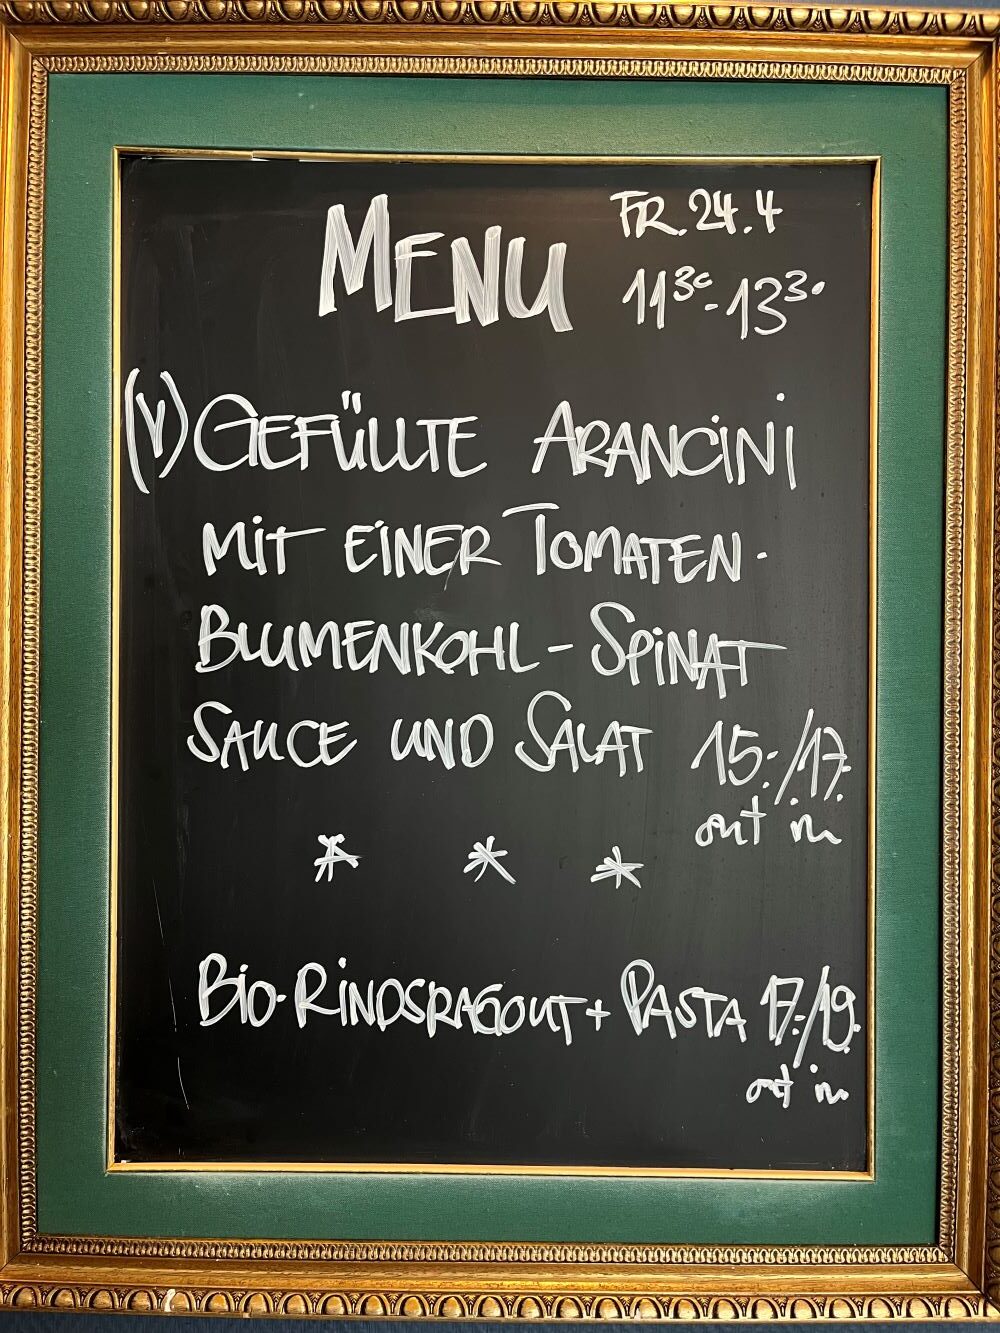 MENU FR. 24.4
11³⁰-13³⁰
(V) GEFÜLLTE ARANCINI
MIT EINER TOMATEN-
BLUMENKOHL-SPINAT
SAUCE UND SALAT 15.-/17.-
out in
* * *
BIO-RINDSRAGOUT + PASTA 17.-/19.-
out in